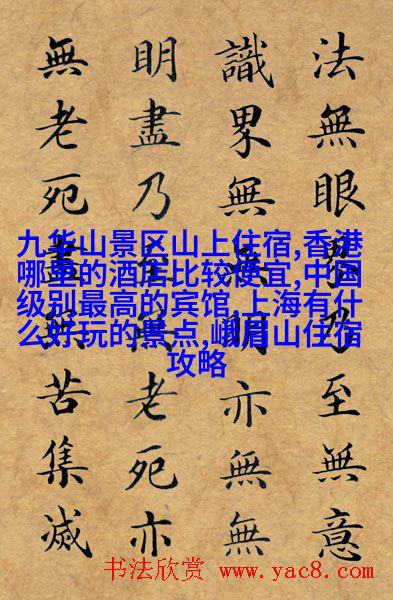 法無眼界乃至無意
識界無無明亦無無
明盡乃至無老死亦
無老死盡無苦集滅
九华山景区山上住宿,香港
哪里的酒店比较便宜,中国
级别最高的宾馆,上海有什
么好玩的景点,峨眉山住宿
攻略
书法欣赏 www.yac8.com